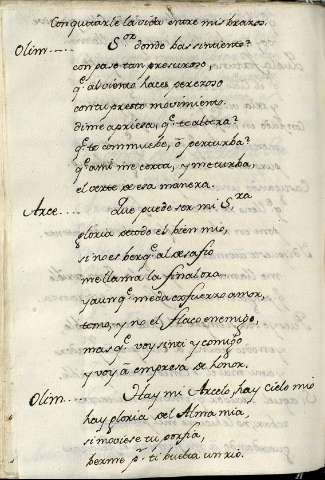 Con quitarle la vida entre mis brazos.
Olim..... Sor donde bas sin tiento?
con paso tan presuroso,
q.e al viento haces perezoso
con tu presto movimiento.
dime apriesa, q.e te altera?
q.e te commuebe, ò perturba?
q.e a mi me corta, y me turba,
el verte de esa manera.
Arce.... Que puede ser mi S.ra
gloria de todo el bien mio,
si no es ber q.e al desafio
me llama la final ora
y aunq.e me da esfuerzo amor,
temo, y no el flaco enemigo,
mas q.e voy sin ti y comigo
y voy à empresa de honor.
Olim.... Hay mi Arcelo, hay cielo mio
hay gloria del Alma mia,
si moviese tu porfia,
berme p.r ti buelta un rio.